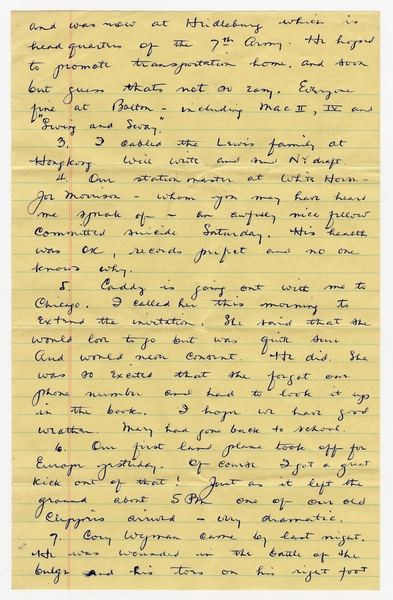 and was now at Heidleburg which is
headquarters of the 7th Army. He hoped
to promote transportation home. and soon
but guess thats not so easy. Everyone
fine at Bolton - including Mac II, IV and
"Swing and Sway."
3. I cabled the Lewis family at
Hongkong. Will write and send NY draft.
4. Our station master at White Horse -
Joe Morrison - whom you may have heard
me speak of - an awfully nice fellow
committed suicide Saturday. His health
was OK, records perfect and no one
knows why.
5. Caddy is going out with me to
Chicago. I called her this morning to
extend the invitation. She said that she
would love to go but was quite sure
And would never consent. He did. She
was so excited that she forgot our
phone number and had to look it up
in the book. I hope we have good
weather. Mary had gone back to school.
6. Our first land plane took off for
Europe yesterday. Of course I got a great
kick out of that! Just as it left the
ground about 5 PM one of our old
Clippers arrived - very dramatic.
7. Cory Wyman came by last night.
He was wounded in the battle of the
bulge and his toes on his right foot